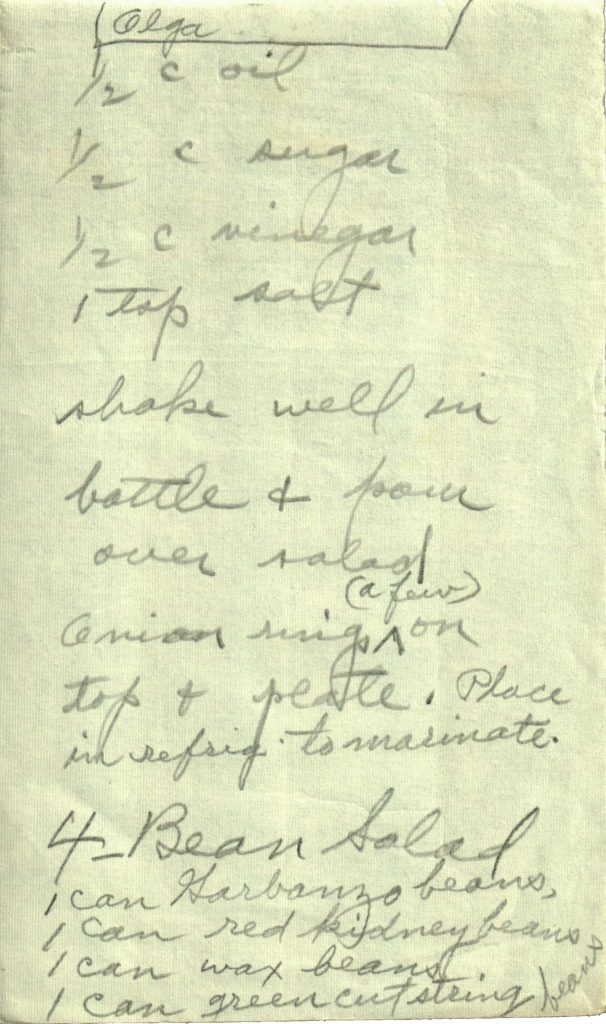 Olga
1/2 c oil
1/2 c sugar
1/2 c vinegar
1 tsp salt
shake well in
bottle & pour
over salad
(a few)
Onion rings ^ on
top & plate. Place
in refrig. to marinate.
4-Bean Salad
1 can Garbanzo beans,
1 can red kidney beans
1 can wax beans
1 can green cut string beans